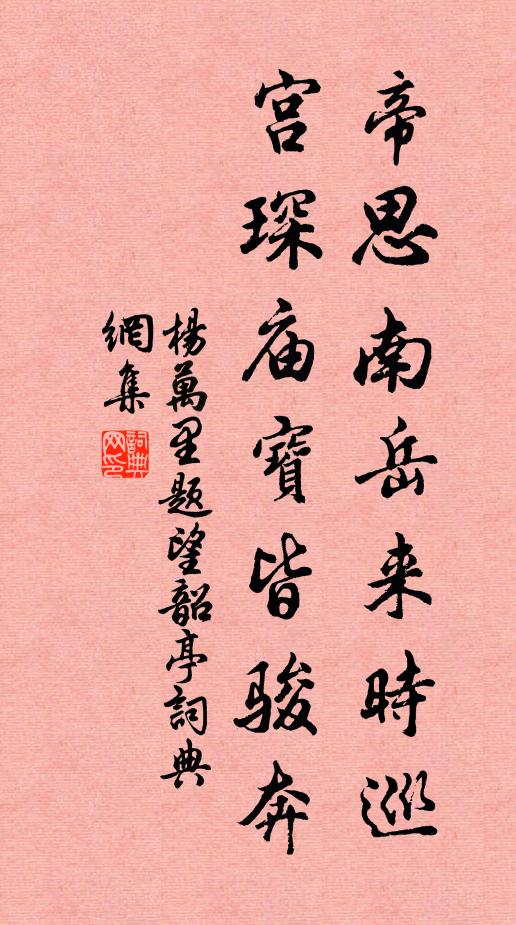 帝思南岳来時巡
宫琛庙寶皆駿奔
楊萬里題望韶亭詞典
網集
詞典
网印